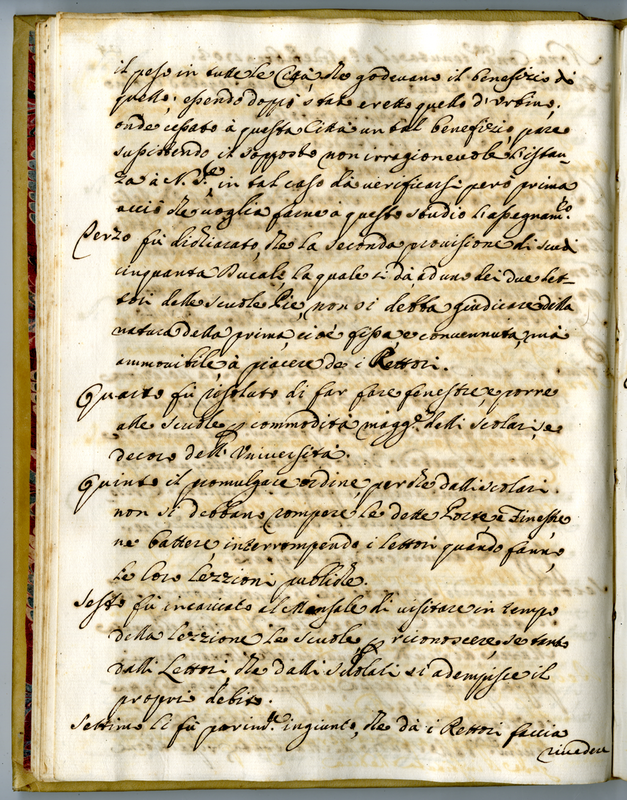 il peso in tutte le Città, che godevano il benefizio di
quello; essendo doppò stato eretto quello d'Urbino;
onde cessato à questa Città un tal benefizio, pare
sussistendo il supposto non irragionevole l'istan-
za à N. S.re, in tal caso dà verificarsi però prima
acciò che voglia farne à questo studio l'assegnam.to
Terzo fù dichiarato, che la seconda provisione di scudi
cinquanta Ducali la quale si dà ad uno dei due let-
tori delle scuole Pie, non si debba giudicare della
natura della prima, cioè fissa, e convennuta, mà
ammovibile à piacere de i Rettori.
Quarto fù risoluto di far fare fenestre, e porre
alle scuole p commodità magg.re delli scolari, e
decoro dell' Università.
Quinto il promulgare ordine, perche dalli scolari
non si debbano rompere le dette Porte, e Finestre
ne battere, interrompendo i lettori quando fanno
le loro lezzioni publiche.
Sesto fù incaricato al Mansale di visitare in tempo
della lezzione le scuole, p riconoscere, se tanto
dalli Lettori, che dalli scholari si adempisce il
proprio debito.
Settimo li fù parim.te ingiunto, che dà i Rettori faccia
rivedere